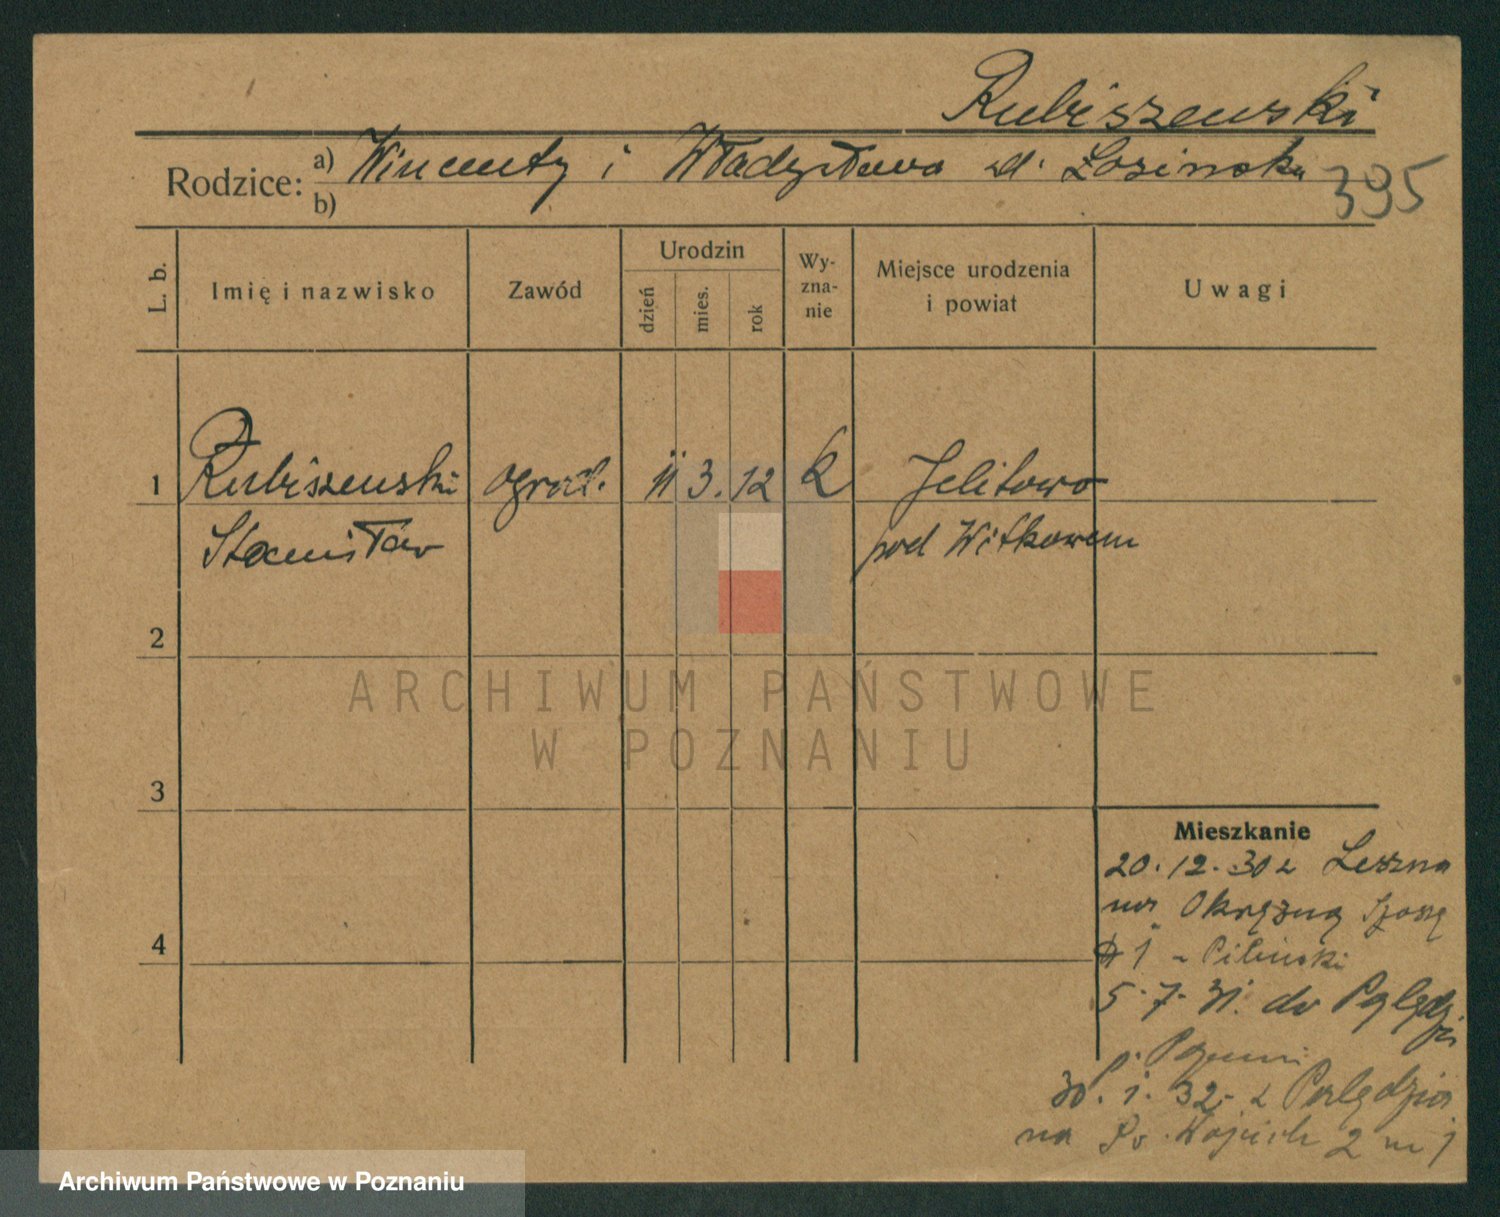 Rubiszewski
Rodzice: a) Wincenty i Władysława d. Łosińska
b)
395
L. b.
Imię i nazwisko
Zawód
Urodzin
dzień
mies.
rok
Wy-
zna-
nie
Miejsce urodzenia
i powiat
Uwagi
1 Rubiszewski ogrod. 11 3. 12 k Jelitowo
Stanisław pod Witkowem
2
3
4
ARCHIWUM PAŃSTWOWE
W POZNANIU
Mieszkanie
20.12.30 z Leszna
na Okrężną Szosę
1 - Piliński
5.7.31. do
30.1.32 - z
na Św. Wojciech 2 m 1
Archiwum Państwowe w Poznaniu